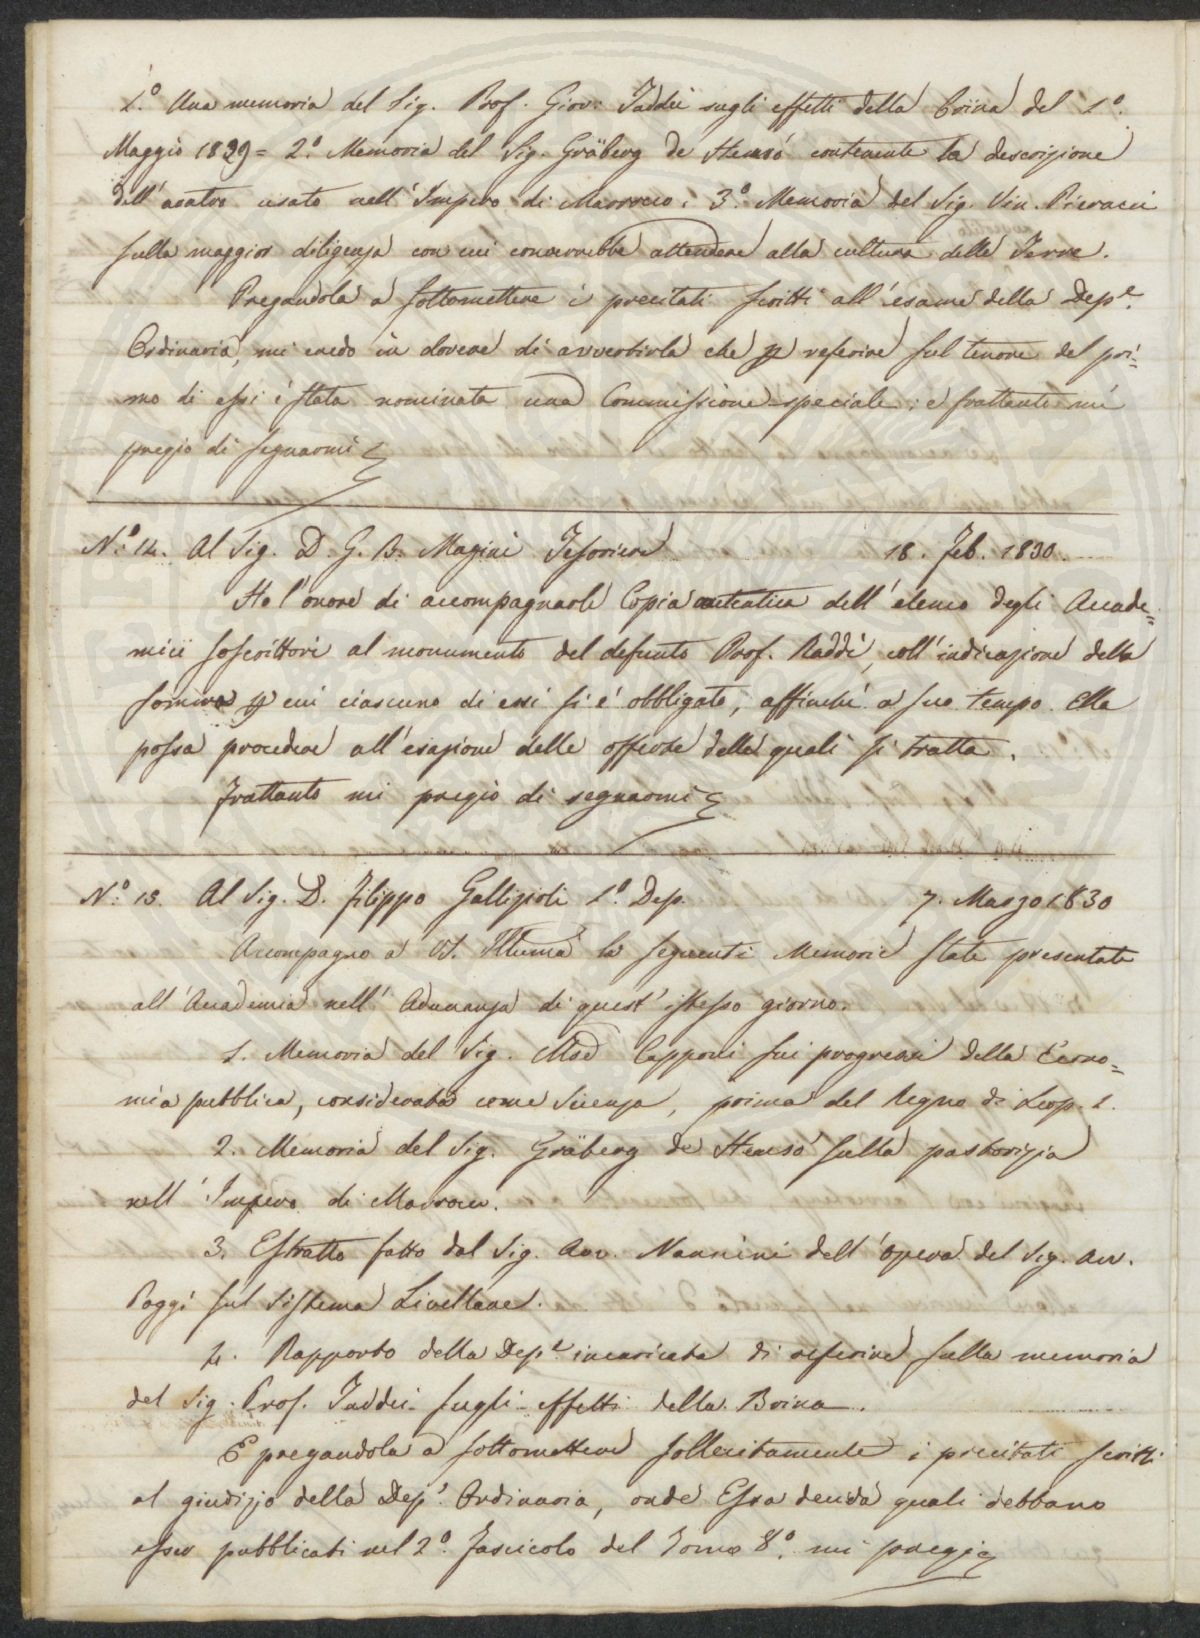 1.º Una memoria del Sig. Prof. Giov. Taddei sugli effetti della Brina del 1º.
Maggio 1829 = 2.º Memoria del Sig. Gräberg de Hemsö contenente la descrizione
dell'aratro usato nell'Impero di Marrocco; 3.º Memoria del Sig. Vin. Pieracci
sulla maggior diligenza con cui converrebbe attendere alla cultura delle Terre.
Pregandola a sottomettere i precitati scritti all'esame della Depe.
Ordinaria, mi credo in dovere di avvertirla che p riferire sul tenore del pri=
mo di essi è stata nominata una Commissione speciale; e frattanto mi
pregio di segnarmi
N.º 12. Al Sig. D. G. B. Magini Tesoriere 18. Feb. 1830.
Ho l'onore di accompagnarle Copia autentica dell'elenco degli Accade=
mici soscrittori al monumento del defunto Prof. Raddi, coll'indicazione della
somma p cui ciascuno di essi si è obbligato, affinchè a suo tempo Ella
possa procedere all'esazione delle offerte delle quali si tratta.
Frattanto mi pregio di segnarmi
N.º 13. Al Sig. D. Filippo Gallizioli 1.º Dep. 7. Marzo 1830
Accompagno a VS. Illuma le seguenti Memorie state presentate
all'Accademia nell'Adunanza di quest'istesso giorno.
1. Memoria del Sig. Capponi sui progressi della Econo=
mia pubblica, considerata come Scienza, prima del Regno di Leop. 1.
2. Memoria del Sig. Gräberg de Hemsö sulla pastorizia
nell'Impero di Marrocco.
3. Estratto fatto dal Sig. Avv. Nannini dell'opera del Sig. Avv.
Poggi sul Sistema Livellare.
4. Rapporto della Depe incaricata di riferire sulla memoria
del Sig. Prof. Taddei sugli effetti della Brina.
E pregandola a sottomettere sollecitamente i precitati scritti
al giudizio della Depe. Ordinaria, onde Essa decida quali debbano
esser pubblicati nel 2.º Fascicolo del Tomo 8.º mi pregio